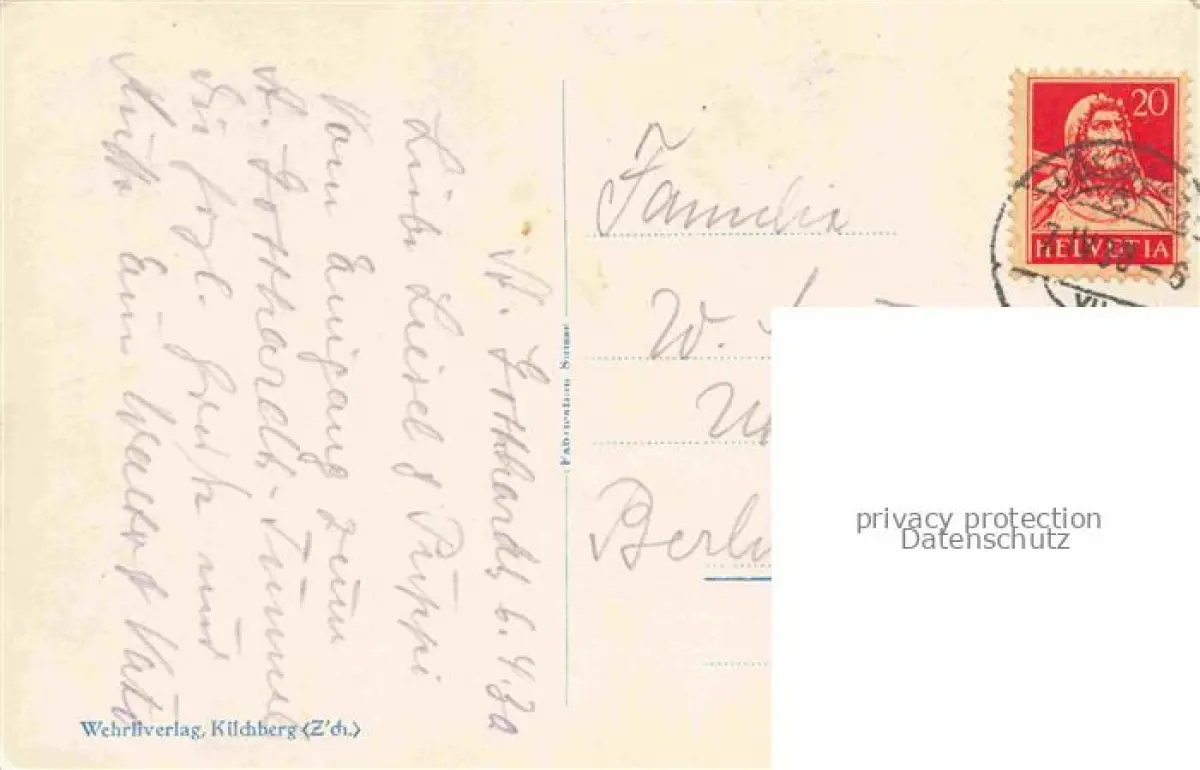 St. Gotthard, 6.4.30
Liebe Liesel & Puppi
Vom Eingang zum
St. Gotthard-Tunnel
die herzl. Grüße und
Euer Walter & Vati
Fabrication Suisse
Wehrliverlag, Kilchberg (Z'ch.)
20
HELVETIA
Familie
W.
Berli
privacy protection
Datenschutz